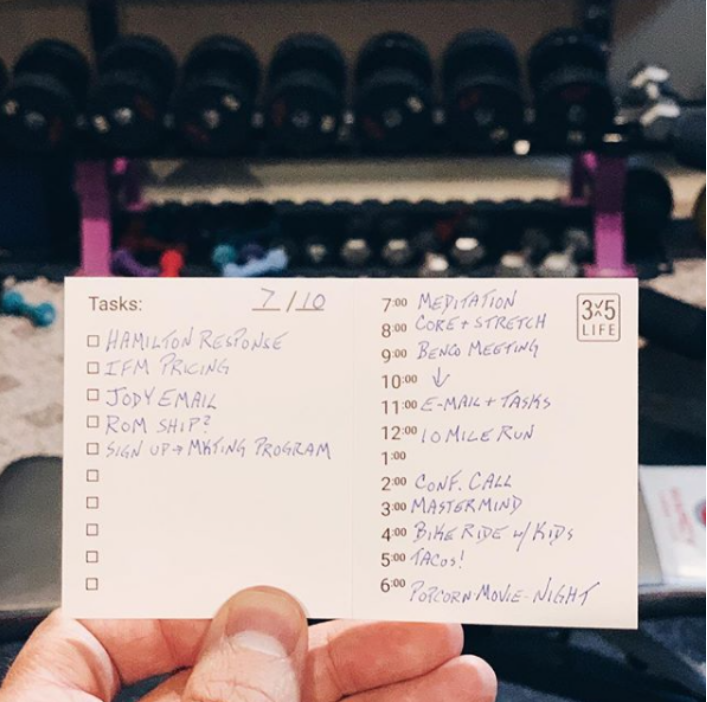 Tasks: 7/10
☐ HAMILTON RESPONSE
☐ IFM PRICING
☐ JODY EMAIL
☐ ROM SHIP?
☐ SIGN UP → MKTING PROGRAM
☐
☐
☐
☐
☐
7:00 MEDITATION
8:00 CORE + STRETCH
9:00 BENCO MEETING
10:00 ↓
11:00 E-MAIL + TASKS
12:00 10 MILE RUN
1:00
2:00 CONF. CALL
3:00 MASTERMIND
4:00 BIKE RIDE w/ KIDS
5:00 TACOS!
6:00 POPCORN-MOVIE-NIGHT
3x5
LIFE